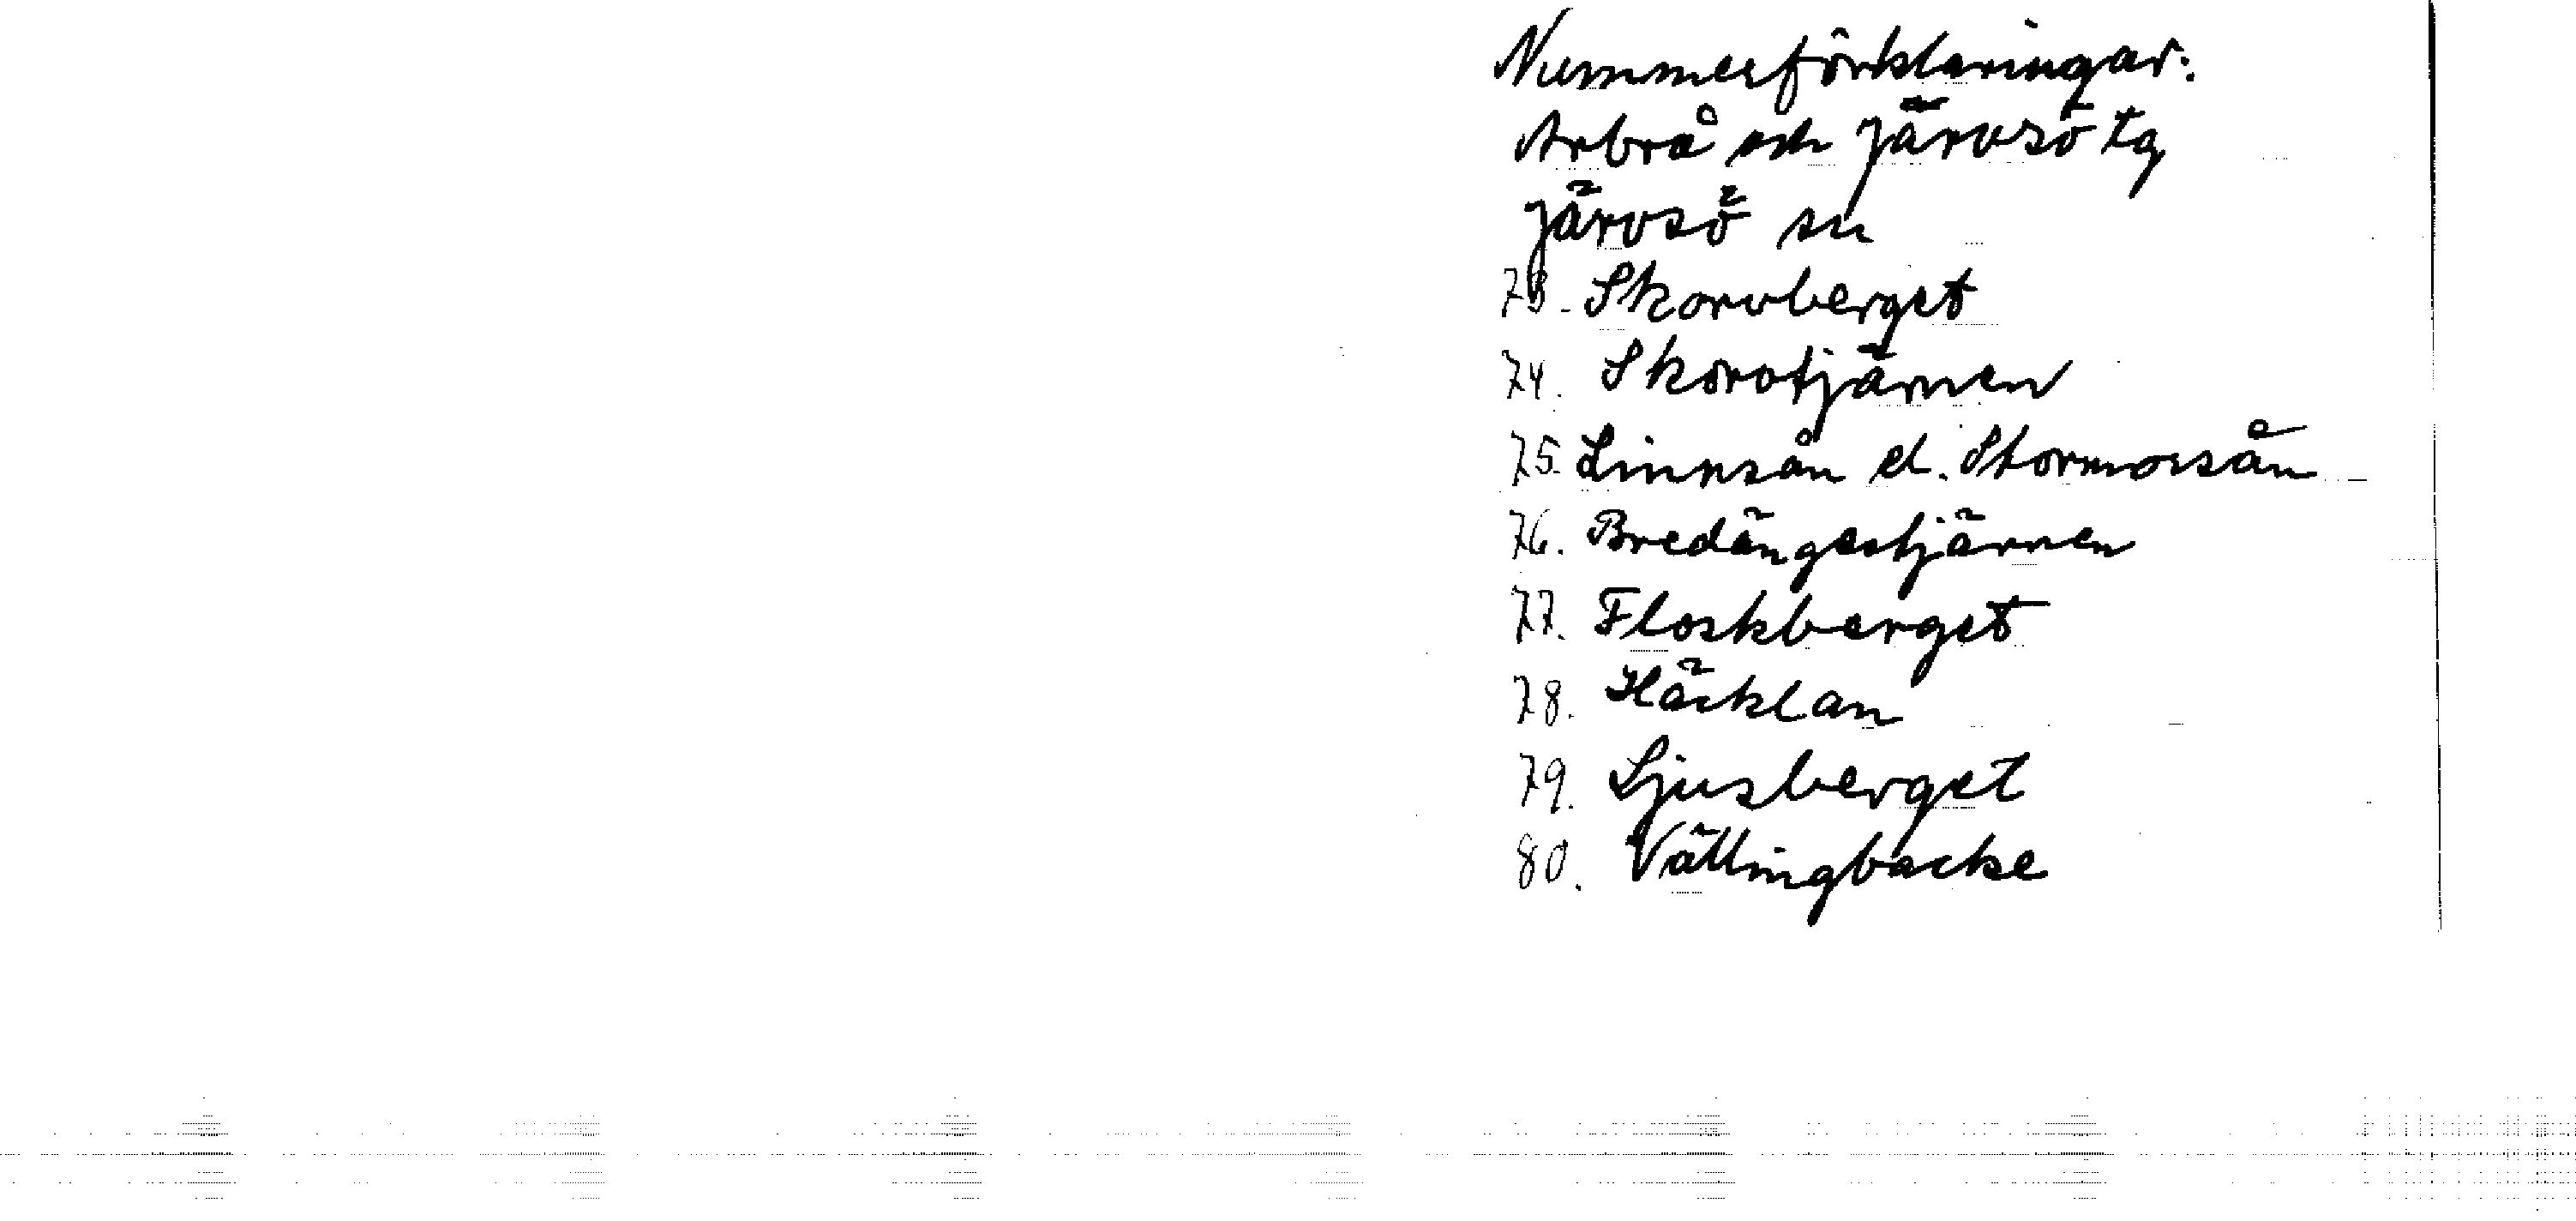 Nummerförklaringar:
Arbrå och Järvsö tg
Järvsö sn
73. Skorvberget
74. Skorvtjärnen
75. Linnsån el. Stormorsån
76. Bredängestjärnen
77. Floskberget
78. Häcklan
79. Ljusberget
80. Vällingbacke